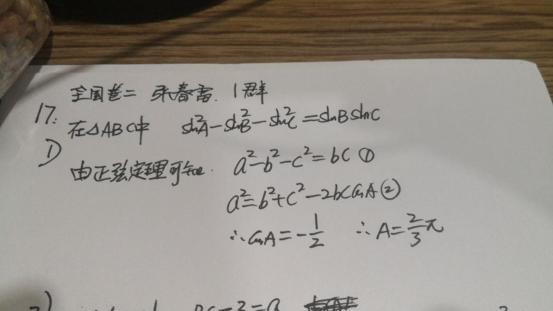 全国卷二 張春雷. 1群
17. 在△ABC中 sin²A-sin²B-sin²C=sinBsinC
① 由正弦定理可知. a²-b²-c²=bc ①
a²=b²+c²-2bccosA②
∴cosA=-1/2 ∴A=2/3π